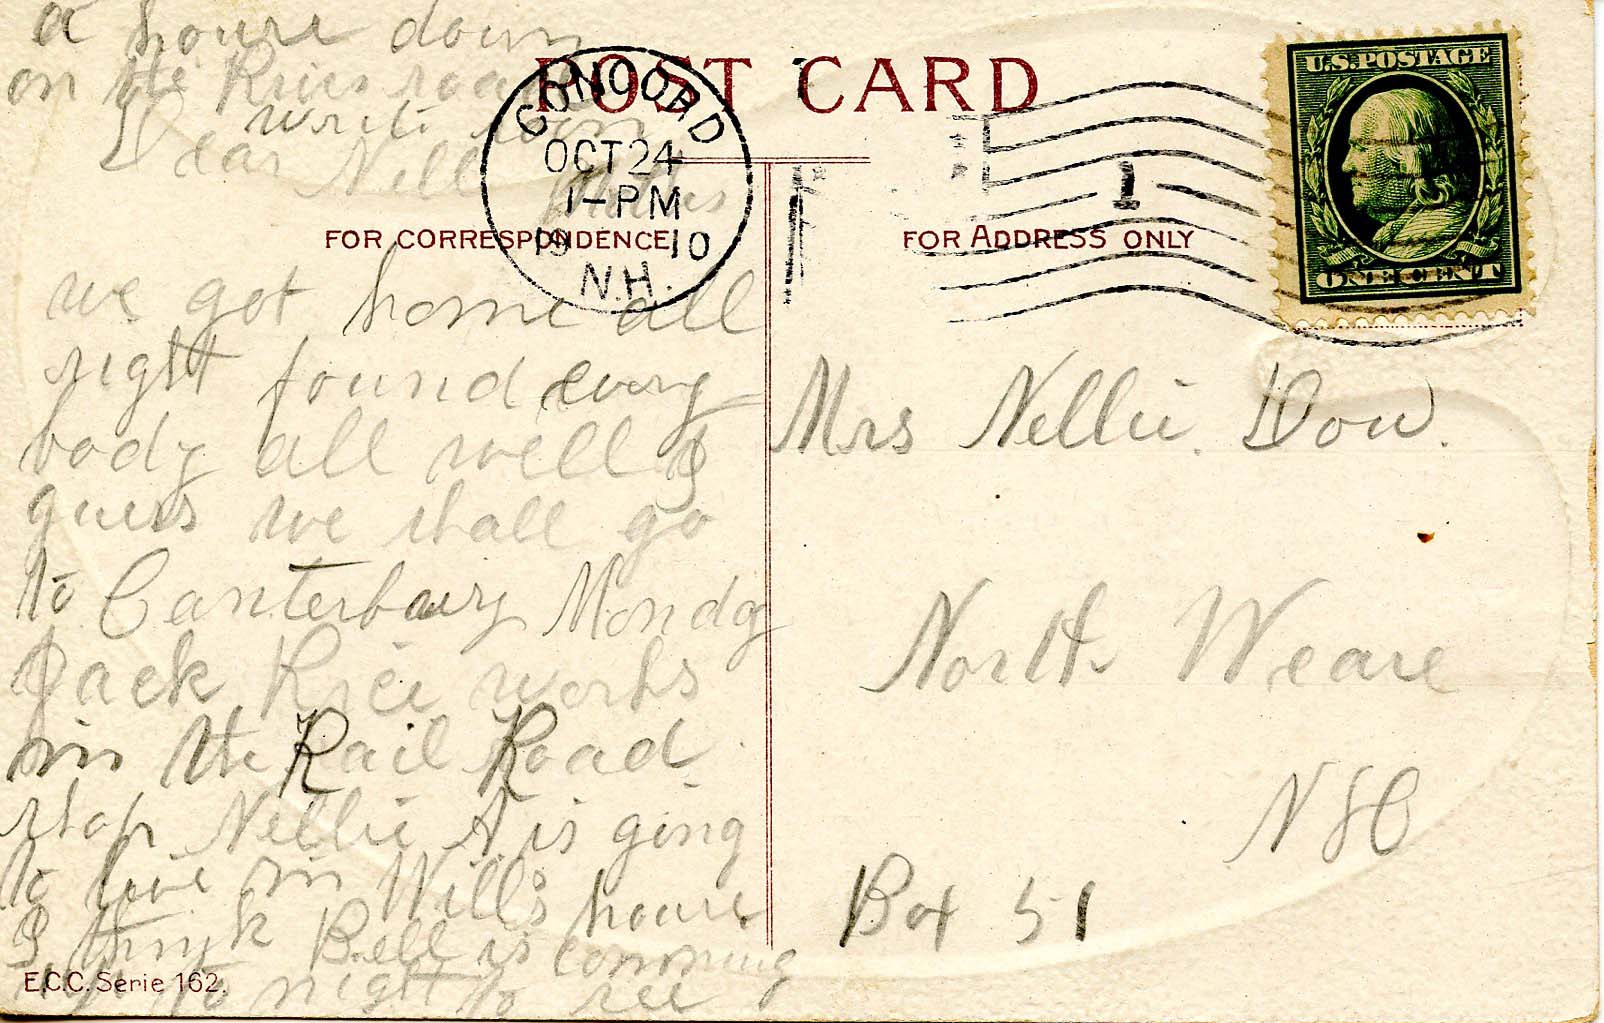 a house down
on the River road
write soon
Dear Nell
POST CARD
CONCORD
OCT 24
1-PM
1910
N.H.
1
U.S. POSTAGE
ONE CENT
FOR CORRESPONDENCE
FOR ADDRESS ONLY
we got home all
right found every
body all well I
guess we shall go
to Canterbury Monday
Jack Rice works
in the Rail Road
shop Nellie A is going
to live in Will's house
I think Bell is comming
up to night to see
E.C.C. Serie 162.
Mrs Nellie. Dow.
North Weare
N H
Box 51